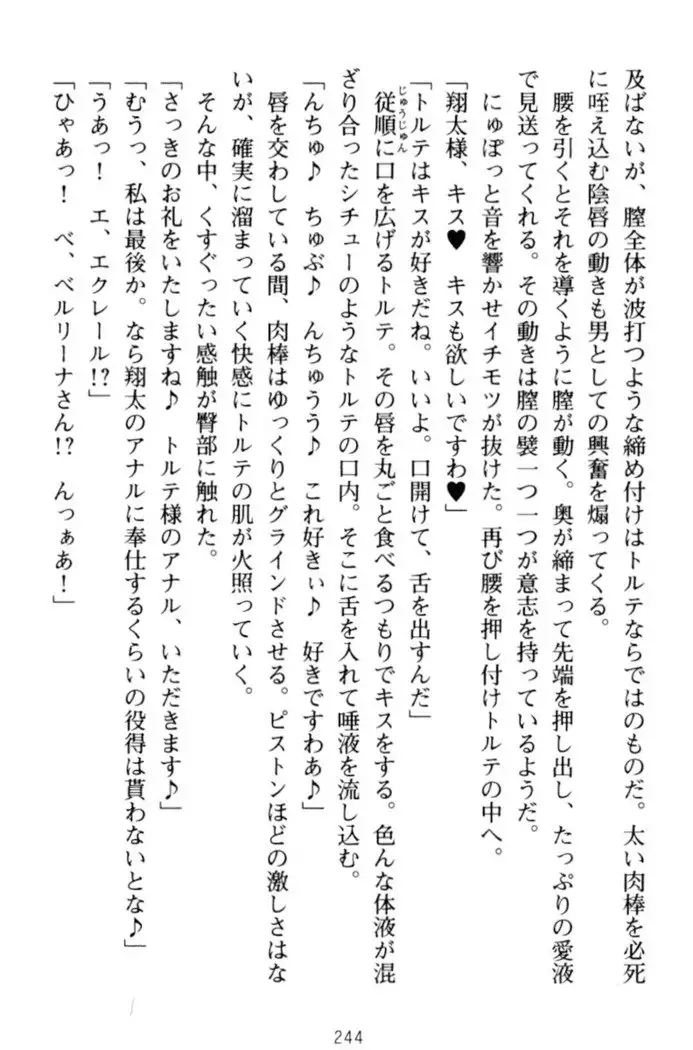 及ばないが、膣全体が波打つような締め付けはトルテならではのものだ。太い肉棒を必死
に咥え込む陰唇の動きも男としての興奮を煽ってくる。
腰を引くとそれを導くように膣が動く。奥が締まって先端を押し出し、たっぷりの愛液
で見送ってくれる。その動きは膣の襞一つ一つが意志を持っているようだ。
にゅぽっと音を響かせイチモツが抜けた。再び腰を押し付けトルテの中へ。
「翔太様、キス♥　キスも欲しいですわ♥」
「トルテはキスが好きだね。いいよ。口開けて、舌を出すんだ」
従順に口を広げるトルテ。その唇を丸ごと食べるつもりでキスをする。色んな体液が混
じゅうじゅん
ざり合ったシチューのようなトルテの口内。そこに舌を入れて唾液を流し込む。
「んちゅ♪　ちゅぶ♪　んちゅうう♪　これ好きぃ♪　好きですわぁ♪」
唇を交わしている間、肉棒はゆっくりとグラインドさせる。ピストンほどの激しさはな
いが、確実に溜まっていく快感にトルテの肌が火照っていく。
そんな中、くすぐったい感触が臀部に触れた。
「さっきのお礼をいたしますね♪　トルテ様のアナル、いただきます♪」
「むうっ、私は最後か。なら翔太のアナルに奉仕するくらいの役得は貰わないとな♪」
「うあっ！　エ、エクレール!?」
「ひゃあっ！　ベ、ベルリーナさん!?　んっぁあ！」
244